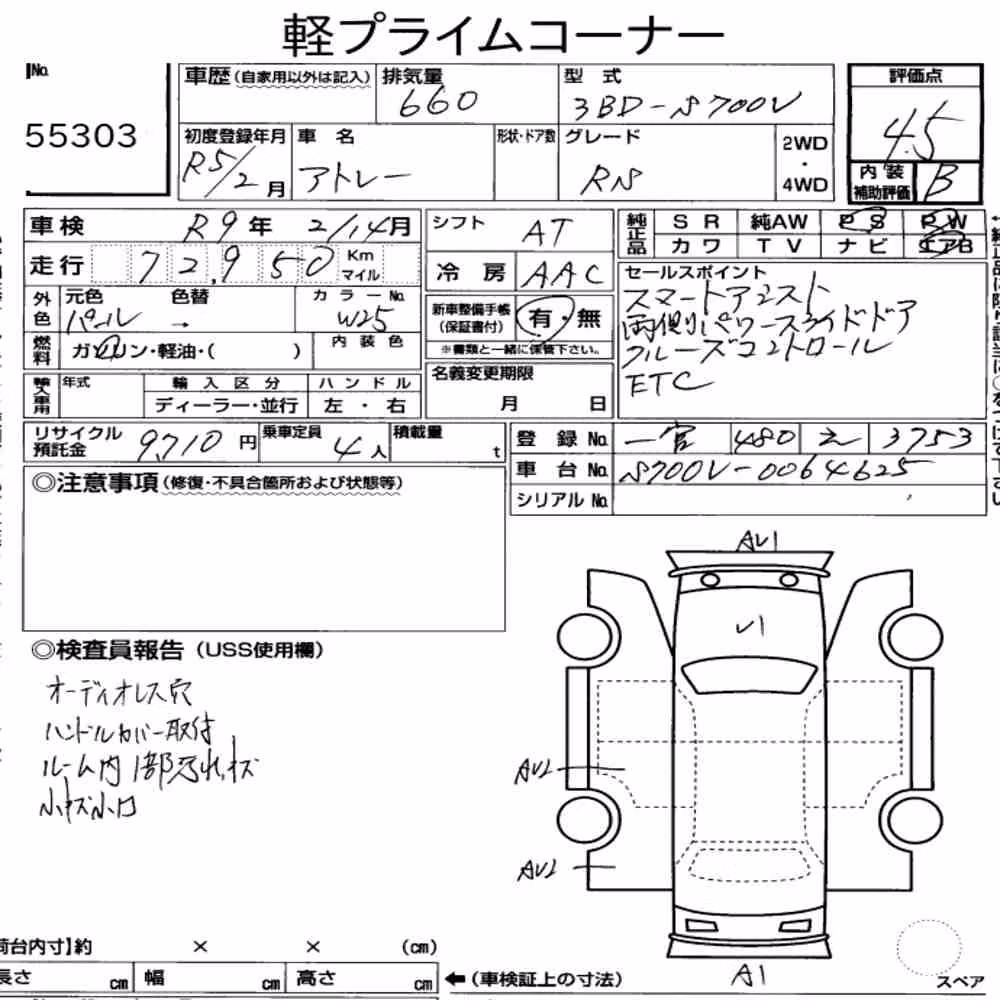 軽プライムコーナー
No.
55303
車歴(自家用以外は記入)
排気量
660
型 式
3BD-S700V
評価点
4.5
初度登録年月
R5/2月
車 名
アトレー
形状・ドア数
グレード
RS
2WD
・
4WD
内 装
補助評価
B
車検
R9年 2/14月
走行
72,950
Km
マイル
シフト
AT
冷 房
AAC
純正品
SR 純AW PS PW
カワ TV ナビ エアB
外色
元色
パール
色替
→
カラーNo.
W25
新車整備手帳
(保証書付)
有・無
※書類と一緒に保管下さい。
セールスポイント
スマートアシスト
両側パワースライドドア
クルーズコントロール
ETC
燃料
ガソリン・軽油・( )
内 装 色
輸入車用
年式
輸 入 区 分
ディーラー・並行
ハ ン ド ル
左 ・ 右
名義変更期限
月 日
リサイクル
預託金
9,710円
乗車定員
4人
積載量
t
登 録 No.
一宮 480 え 3753
車 台 No.
S700V-0064625
シリアル No.
◎注意事項(修復・不具合箇所および状態等)
◎検査員報告(USS使用欄)
オーディオレス穴
ハンドルカバー取付
ルーム内1部汚れ、キズ
小キズ小凹
AU1
U1
AU2
AU2
A1
スペア
荷台内寸】約 × × (cm)
長さ cm 幅 cm 高さ cm
←(車検証上の寸法)